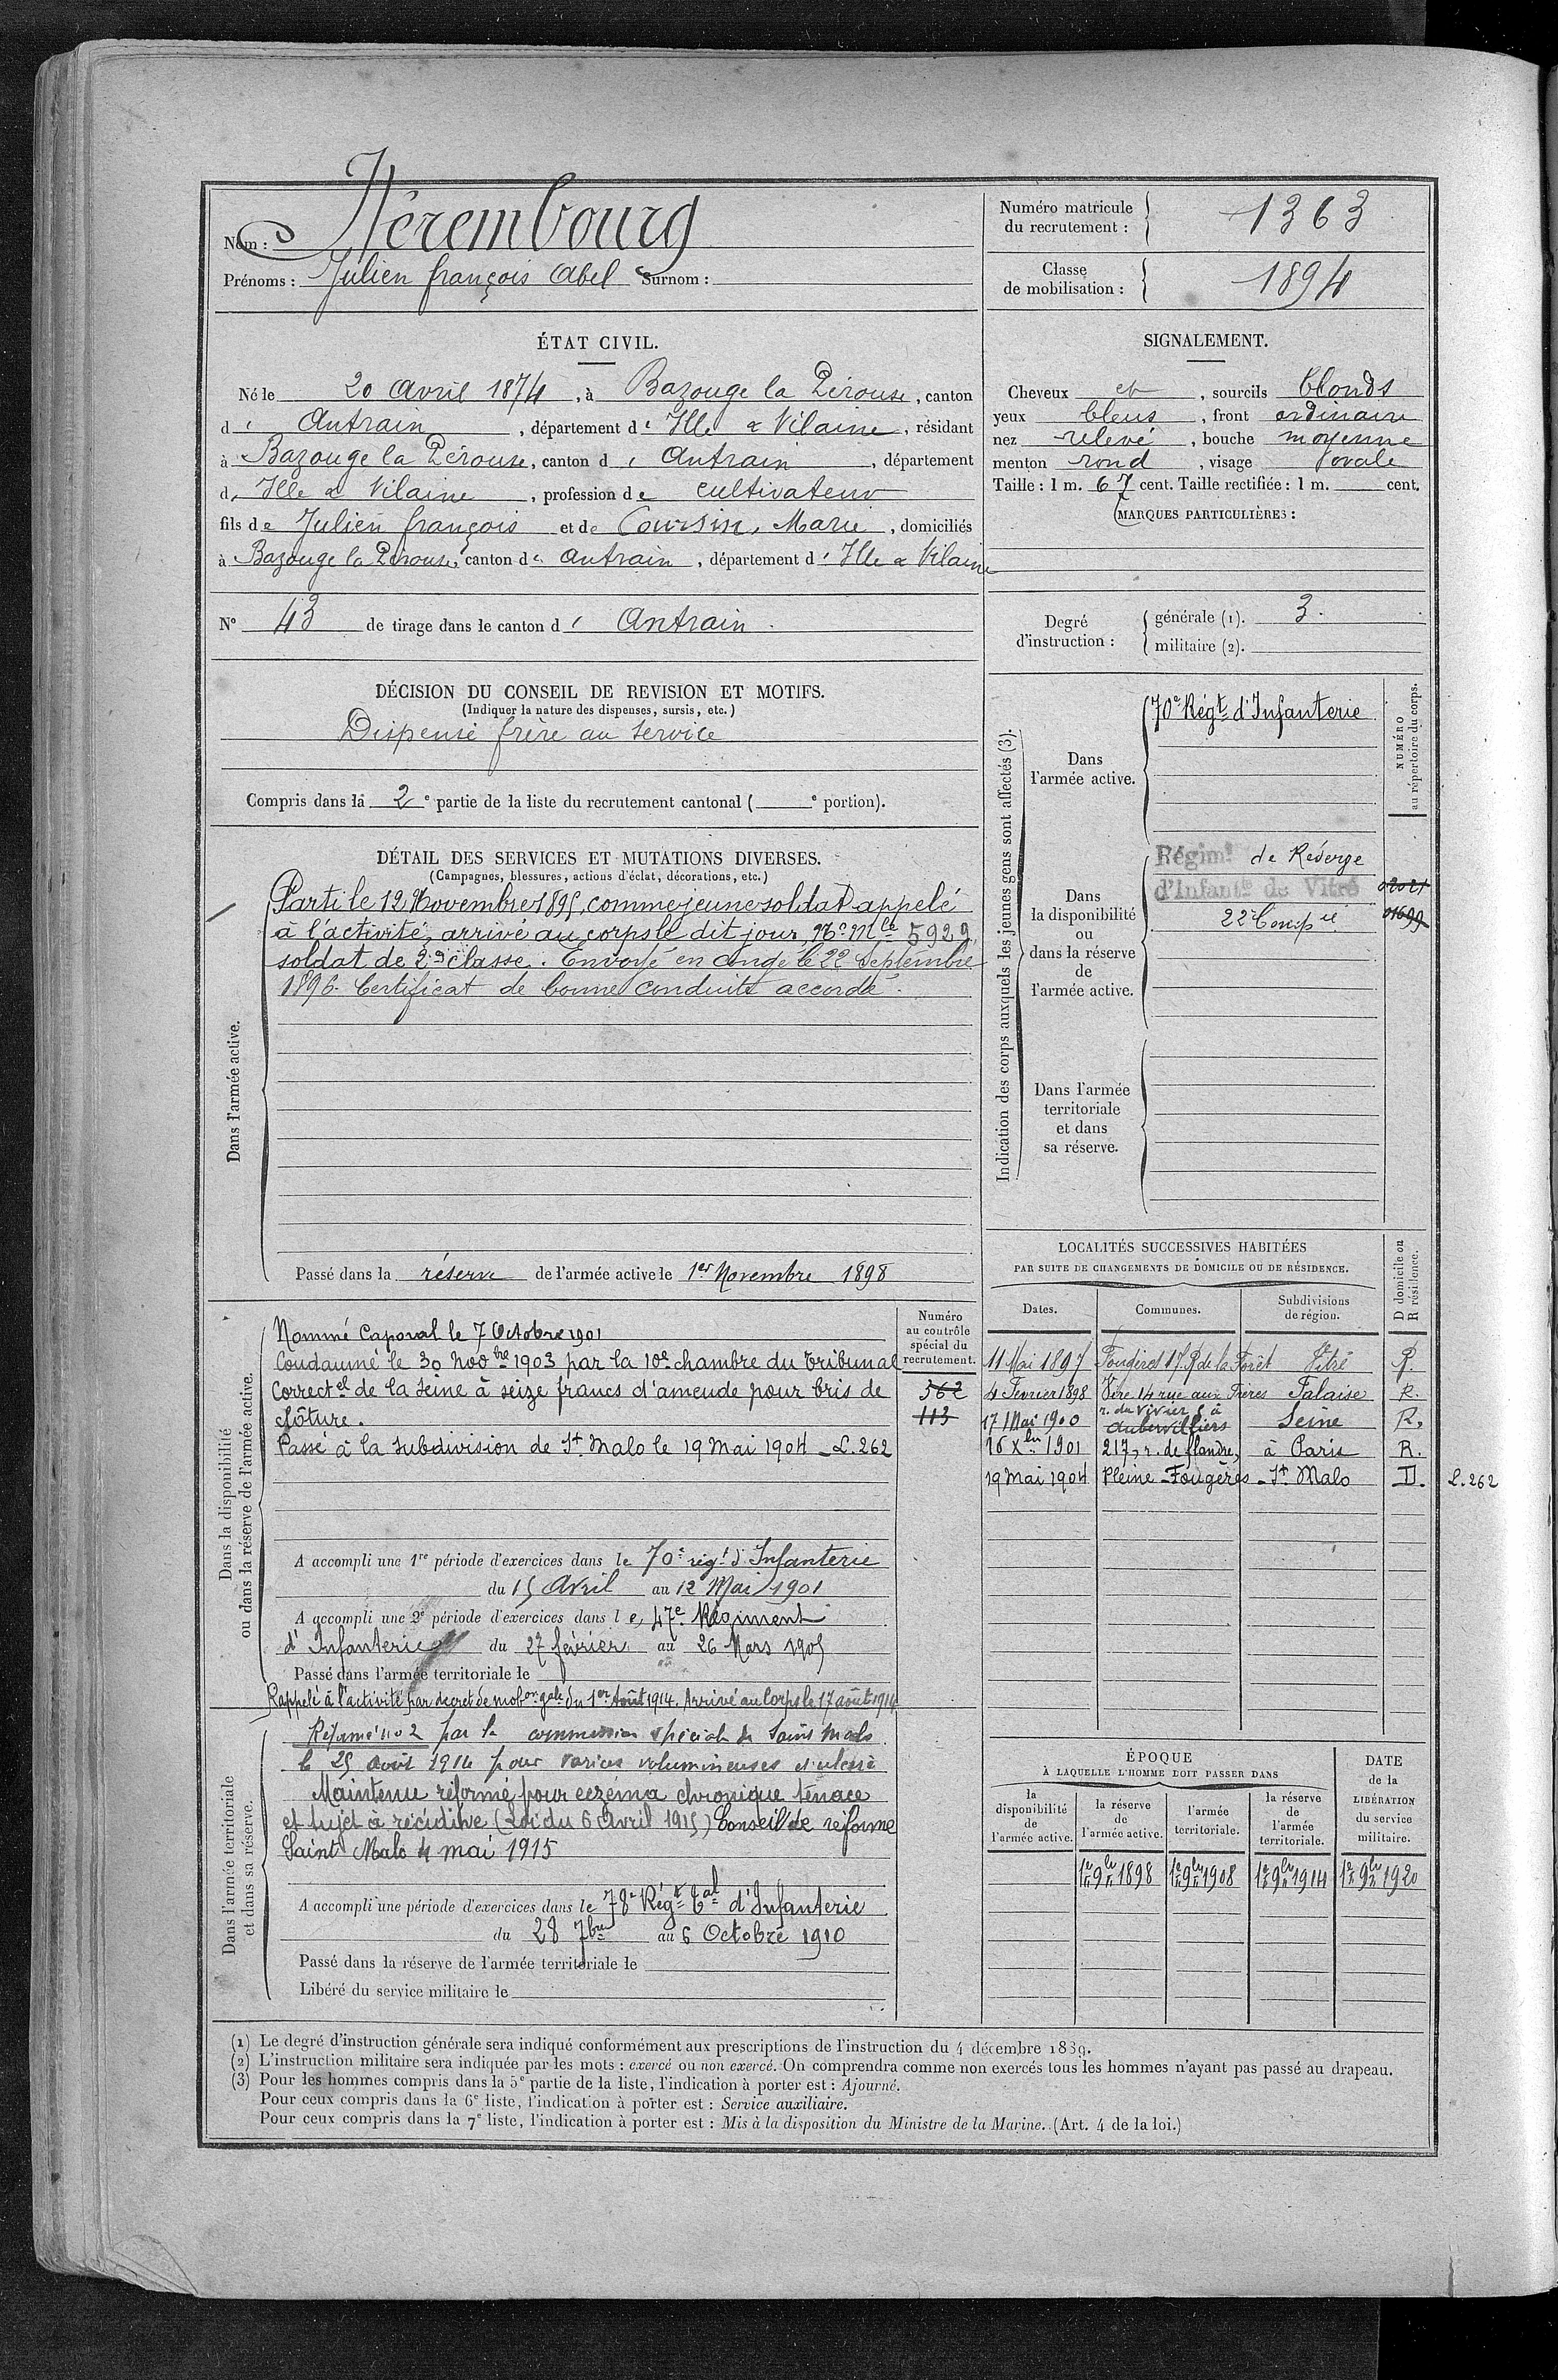 Nom : Hérembourg
Prénoms : Julien françois Abel Surnom :
Numéro matricule du recrutement : 1363
Classe de mobilisation : 1894
ÉTAT CIVIL.
Né le 20 Avril 1874, à Bazouge la Pérouse, canton
d' Antrain, département d' Ille & Vilaine, résidant
à Bazouge la Pérouse, canton d' Antrain, département
d' Ille & Vilaine, profession de cultivateur
fils de Julien françois et de Coursin, Marie, domiciliés
à Bazouge la Pérouse, canton d' Antrain, département d' Ille & Vilaine
N° 43 de tirage dans le canton d' Antrain.
SIGNALEMENT.
Cheveux et, sourcils blonds
yeux bleus, front ordinaire
nez relevé, bouche moyenne
menton rond, visage ovale
Taille : 1 m. 67 cent. Taille rectifiée : 1 m. cent.
MARQUES PARTICULIÈRES :
Degré d'instruction : générale (1). 3.
militaire (2).
DÉCISION DU CONSEIL DE REVISION ET MOTIFS.
(Indiquer la nature des dispenses, sursis, etc.)
Dispensé frère au service
Compris dans la 2e partie de la liste du recrutement cantonal ( e portion).
DÉTAIL DES SERVICES ET MUTATIONS DIVERSES.
(Campagnes, blessures, actions d'éclat, décorations, etc.)
Dans l'armée active.
Parti le 12 Novembre 1895, comme jeune soldat appelé
à l'activité, arrivé au corps le dit jour, No Mle 5929,
soldat de 2e classe. Envoyé en congé le 22 Septembre
1896. Certificat de bonne conduite accordé.
Passé dans la réserve de l'armée active le 1er Novembre 1898
Indication des corps auxquels les jeunes gens sont affectés (3).
NUMÉRO
au répertoire du corps.
Dans l'armée active.
70e Régt d'Infanterie
Dans la disponibilité ou dans la réserve de l'armée active.
Régimt de Réserve
d'Infantie de Vitré
22e Compie
02021
01699
Dans l'armée territoriale et dans sa réserve.
Dans la disponibilité
ou dans la réserve de l'armée active.
Numéro au contrôle spécial du recrutement.
362
113
Nommé Caporal le 7 Octobre 1901
Condamné le 30 Novbre 1903 par la 10e chambre du tribunal
Correctel de la Seine à seize francs d'amende pour bris de
clôture.
Passé à la subdivision de St Malo le 19 Mai 1904 - L. 262
A accompli une 1re période d'exercices dans le 70e régt d'Infanterie
du 15 Avril au 12 Mai 1901
A accompli une 2e période d'exercices dans le 47e Régiment
d'Infanterie du 27 février au 26 Mars 1905
Passé dans l'armée territoriale le
Rappelé à l'activité par décret de mobon gale du 1er Août 1914. Arrivé au Corps le 17 août 1914
Dans l'armée territoriale
et dans sa réserve.
Réformé no 2 par la commission spéciale de Saint Malo
le 25 août 1914 pour varices volumineuses et ulcère
Maintenu réformé pour eczéma chronique tenace
et sujet à récidive (Loi du 6 Avril 1915) Conseil de réforme
Saint Malo 4 mai 1915
A accompli une période d'exercices dans le 78e Régt Tal d'Infanterie
du 28 7bre au 6 Octobre 1910
Passé dans la réserve de l'armée territoriale le
Libéré du service militaire le
LOCALITÉS SUCCESSIVES HABITÉES
PAR SUITE DE CHANGEMENTS DE DOMICILE OU DE RÉSIDENCE.
D domicile ou
R résidence.
Dates. Communes. Subdivisions de région.
11 Mai 1897 Fougères 17. R de la Forêt Vitré R.
4 Février 1898 Vire 14 rue aux Frères Falaise R.
17 Mai 1900 r. du Vivier 5 à Aubervilliers Seine R.
16 Xbre 1901 217, r. de flandre, à Paris R.
19 Mai 1904 Pleine-Fougères - St Malo D. L. 262
ÉPOQUE
À LAQUELLE L'HOMME DOIT PASSER DANS
la disponibilité de l'armée active.
la réserve de l'armée active.
l'armée territoriale.
la réserve de l'armée territoriale.
DATE de la LIBÉRATION du service militaire.
1er 9bre 1898 1er 9bre 1908 1er 9bre 1914 1er 9bre 1920
(1) Le degré d'instruction générale sera indiqué conformément aux prescriptions de l'instruction du 4 décembre 1889.
(2) L'instruction militaire sera indiquée par les mots : exercé ou non exercé. On comprendra comme non exercés tous les hommes n'ayant pas passé au drapeau.
(3) Pour les hommes compris dans la 5e partie de la liste, l'indication à porter est : Ajourné.
Pour ceux compris dans la 6e liste, l'indication à porter est : Service auxiliaire.
Pour ceux compris dans la 7e liste, l'indication à porter est : Mis à la disposition du Ministre de la Marine. (Art. 4 de la loi.)